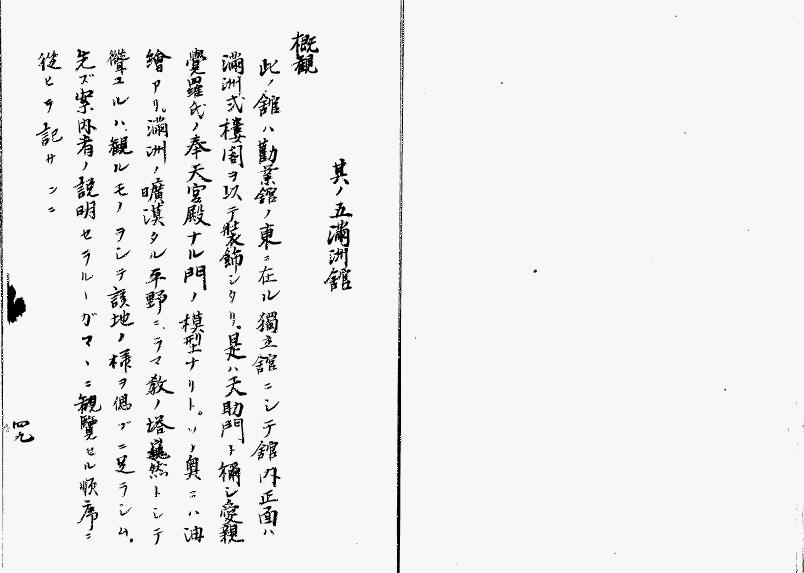 其ノ五 滿洲舘
概観
此ノ舘ハ勸業舘ノ東ニ在ル獨立舘ニシテ舘内正面ハ
滿洲式樓閣ヲ以テ装飾シタリ。是ハ天助門ト稱シ愛親
覺羅氏ノ奉天宮殿ナル門ノ模型ナリト。ソノ奥ニハ油
繪アリ。滿洲ノ曠漠タル平野ニ、ラマ教ノ塔巍然トシテ
聳ユルハ、観ルモノヲシテ該地ノ様ヲ偲ブニ足ラシム。
先ズ案内者ノ説明セラルヽガマヽニ観覽セル順序ニ
從ヒテ記サンニ
四九